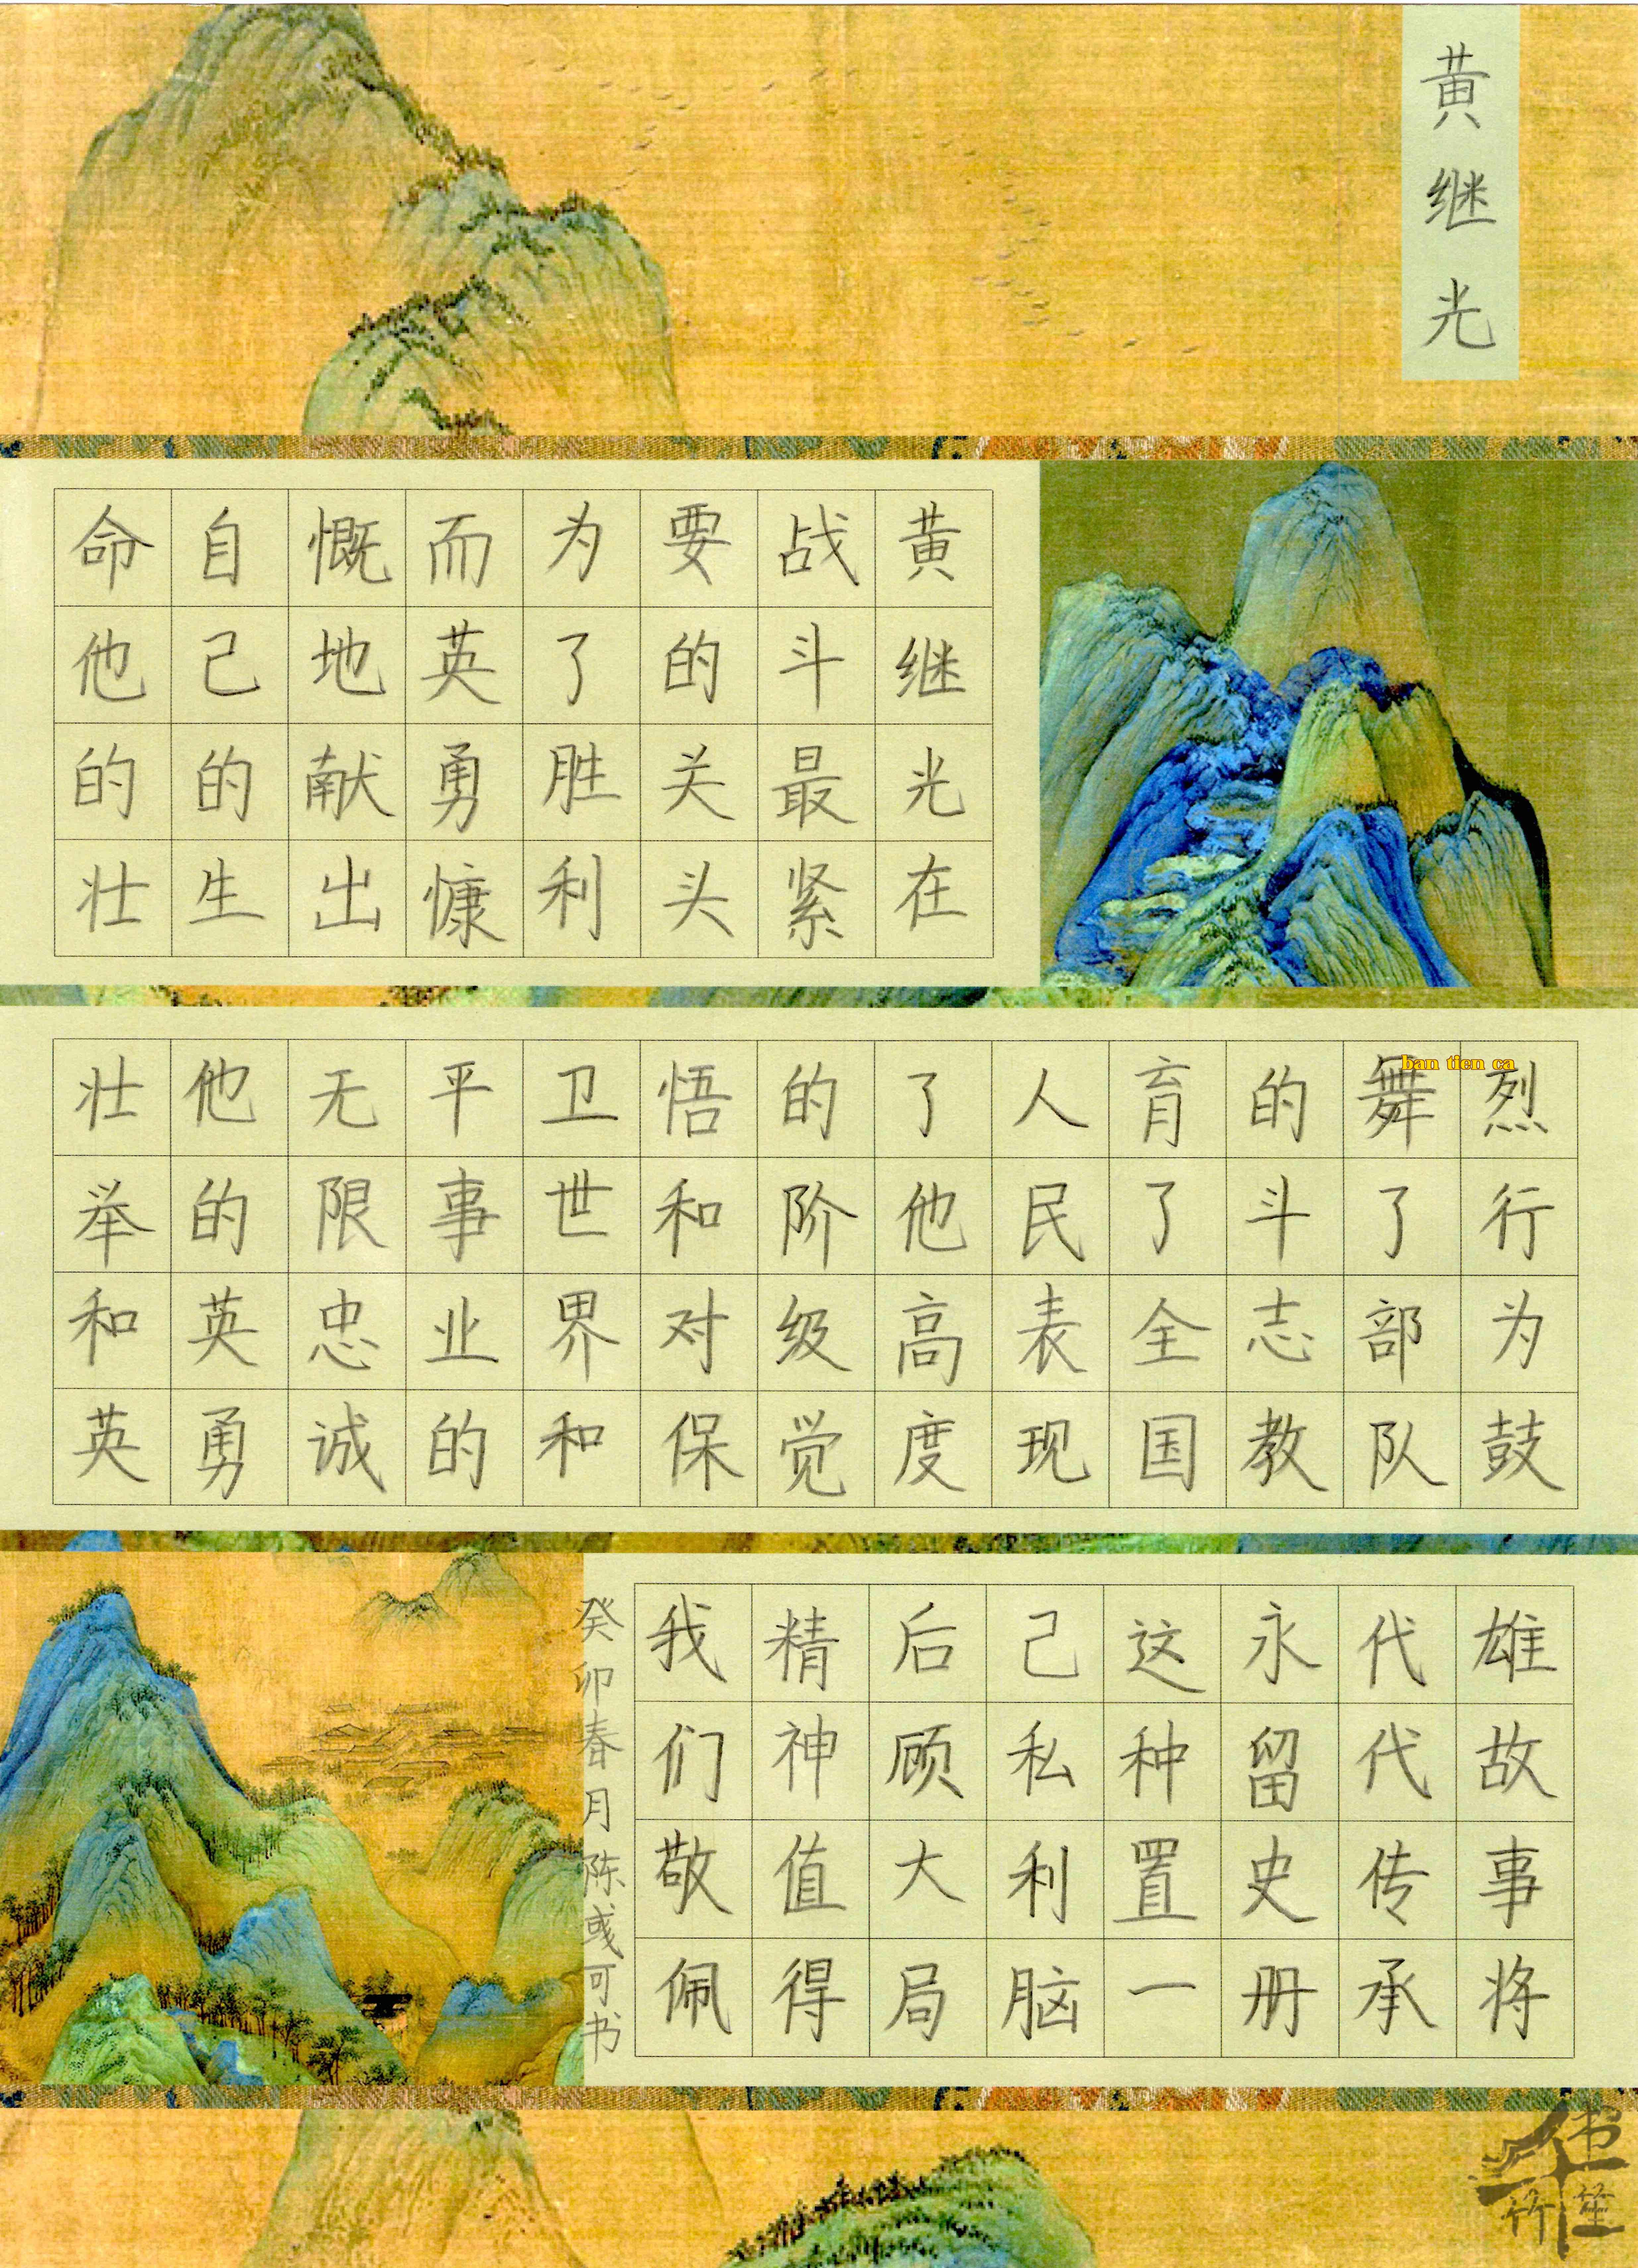 黄继光
黄继光在
战斗最紧
要的关头
为了胜利
而英勇慷
慨地献出
自己的生
命他的壮
烈行为鼓
舞了部队
的斗志教
育了全国
人民表现
了他高度
的阶级觉
悟和对保
卫世界和
平事业的
无限忠诚
他的英勇
壮举和英
雄故事将
代代传承
永留史册
这种置一
己私利脑
后顾大局
精神值得
我们敬佩
癸卯春月陈彧可书
ban tien ca